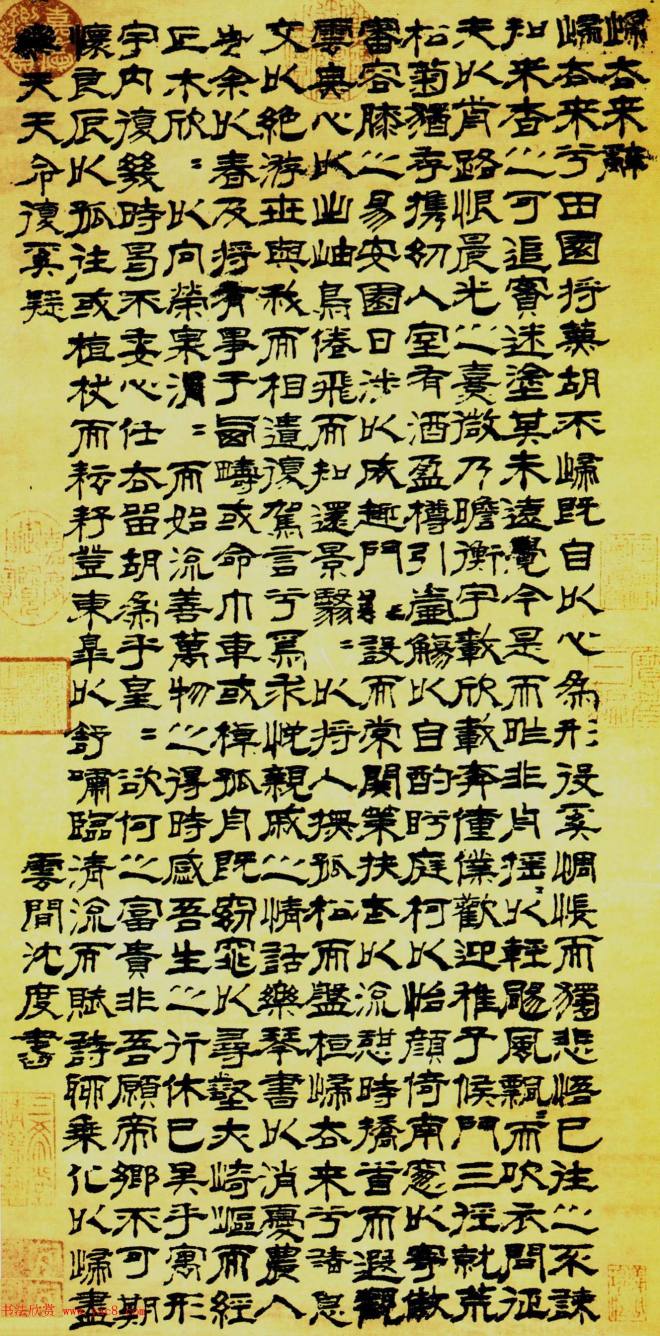 歸去來辭
歸去來兮田園將蕪胡不歸既自以心為形役奚惆悵而獨悲悟已往之不諫
知來者之可追實迷塗其未遠覺今是而昨非舟搖〻以輕颺風飄〻而吹衣問征
夫以前路恨晨光之熹微乃瞻衡宇載欣載奔僮僕歡迎稚子候門三徑就荒
松菊猶存攜幼入室有酒盈樽引壺觴以自酌眄庭柯以怡顏倚南窗以寄傲
審容膝之易安園日涉以成趣門雖設而常關策扶老以流憩時矯首而遐觀
雲無心以出岫鳥倦飛而知還景翳〻以將入撫孤松而盤桓歸去來兮請息
交以絕游世與我而相遺復駕言兮焉求悅親戚之情話樂琴書以消憂農人
告余以春及將有事于西疇或命巾車或棹孤舟既窈窕以尋壑亦崎嶇而經
丘木欣〻以向榮泉涓〻而始流善萬物之得時感吾生之行休已矣乎寓形
宇內復幾時曷不委心任去留胡為乎皇〻欲何之富貴非吾願帝鄉不可期
懷良辰以孤往或植杖而耘耔登東皋以舒嘯臨清流而賦詩聊乘化以歸盡
樂夫天命復奚疑
雲間沈度書
书法欣赏 www.yac8.com